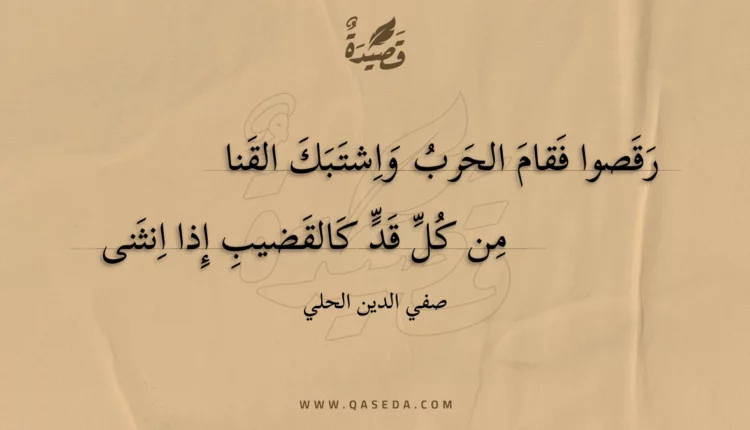 قَصِيدَةٌ
رَقَصوا فَقامَ الحَربُ وَاِشتَبَكَ القَنا
مِن كُلِّ قَدٍّ كَالقَضيبِ إِذا اِنثَنى
صفي الدين الحلي
WWW.QASEDA.COM